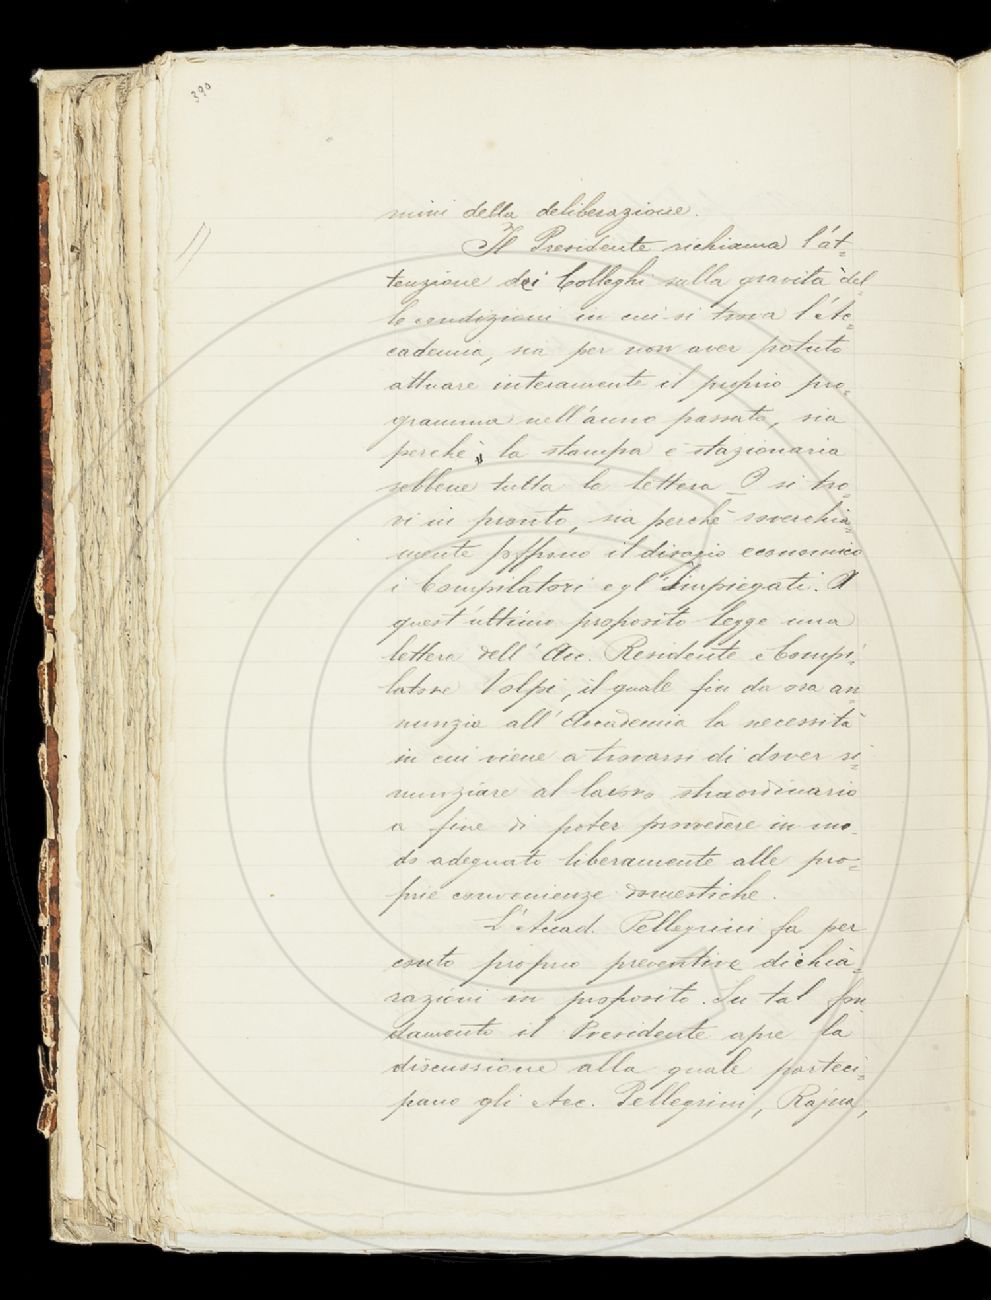 390
mini della deliberazione.
Il Presidente richiama l'at=
tenzione dei Colleghi sulla gravità del=
le condizioni in cui si trova l'Ac=
cademia, sia per non aver potuto
attuare interamente il proprio pro=
gramma nell'anno passato, sia
perchè la stampa è stazionaria
sebbene tutta la lettera si tro=
vi in pronto, sia perchè soverchia=
mente soffrono il disagio economico
i Compilatori e gl'Impiegati. A
quest'ultimo proposito legge una
lettera dell'Acc. Residente e Compi=
latore Volpi, il quale fin da ora an
nunzia all'Accademia la necessità
in cui viene a trovarsi di dover ri=
nunziare al lavoro straordinario
a fine di poter provvedere in mo=
do adeguato liberamente alle pro=
prie convenienze domestiche.
L'Accad. Pellegrini fa per
conto proprio preventive dichia=
razioni in proposito. Su tal fon
damento il Presidente apre la
discussione alla quale parteci=
pano gli Acc. Pellegrini, Rajna,